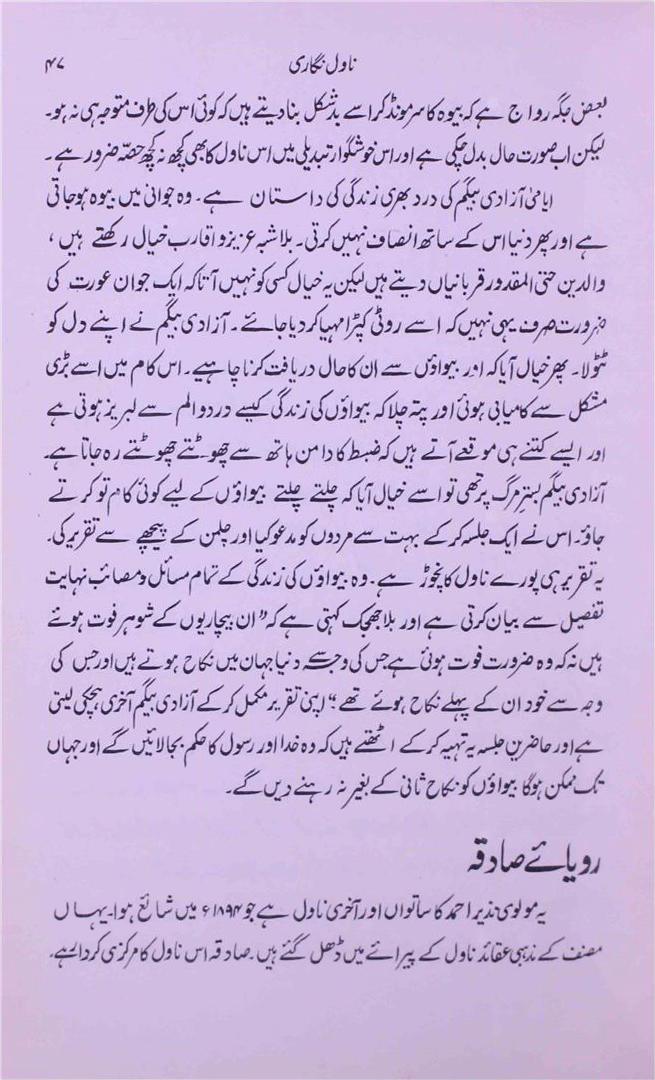 ناول نگاری ۴۷
بعض جگہ رواج ہے کہ بیوہ کا سر مونڈ کر اسے بد شکل بنا دیتے ہیں کہ کوئی اس کی طرف متوجہ ہی نہ ہو۔
لیکن اب صورت حال بدل چکی ہے اور اس خوشگوار تبدیلی میں اس ناول کا بھی کچھ نہ کچھ حصّہ ضرور ہے۔
ایامیٰ آزادی بیگم کی درد بھری زندگی کی داستان ہے۔ وہ جوانی میں بیوہ ہو جاتی
ہے اور پھر دنیا اس کے ساتھ انصاف نہیں کرتی۔ بلاشبہ عزیز و اقارب خیال رکھتے ہیں،
والدین حتی المقدور قربانیاں دیتے ہیں لیکن یہ خیال کسی کو نہیں آتا کہ ایک جوان عورت کی
ضرورت صرف یہی نہیں کہ اسے روٹی کپڑا مہیا کر دیا جائے۔ آزادی بیگم نے اپنے دل کو
ٹٹولا۔ پھر خیال آیا کہ اور بیواؤں سے ان کا حال دریافت کرنا چاہیے۔ اس کام میں اسے بڑی
مشکل سے کامیابی ہوئی اور پتہ چلا کہ بیواؤں کی زندگی کیسے درد و الم سے لبریز ہوتی ہے
اور ایسے کتنے ہی موقعے آتے ہیں کہ ضبط کا دامن ہاتھ سے چھوٹتے چھوٹتے رہ جاتا ہے۔
آزادی بیگم بسترِ مرگ پر تھی تو اسے خیال آیا کہ چلتے چلتے بیواؤں کے لیے کوئی کام تو کرتے
جاؤ۔ اس نے ایک جلسہ کر کے بہت سے مردوں کو مدعو کیا اور چلمن کے پیچھے سے تقریر کی۔
یہ تقریر ہی پورے ناول کا نچوڑ ہے۔ وہ بیواؤں کی زندگی کے تمام مسائل و مصائب نہایت
تفصیل سے بیان کرتی ہے اور بلا جھجک کہتی ہے کہ ”ان بیچاریوں کے شوہر فوت ہوئے
ہیں نہ کہ وہ ضرورت فوت ہوئی ہے جس کی وجہ سے دنیا جہان میں نکاح ہوتے ہیں اور جس کی
وجہ سے خود ان کے پہلے نکاح ہوئے تھے“ اپنی تقریر مکمل کر کے آزادی بیگم آخری ہچکی لیتی
ہے اور حاضرین جلسہ یہ تہیہ کر کے اٹھتے ہیں کہ وہ خدا اور رسول کا حکم بجا لائیں گے اور جہاں
تک ممکن ہوگا بیواؤں کو نکاح ثانی کے بغیر نہ رہنے دیں گے۔
رویائے صادقہ
یہ مولوی نذیر احمد کا ساتواں اور آخری ناول ہے جو ۱۸۹۴ء میں شائع ہوا۔ یہاں
مصنف کے مذہبی عقائد ناول کے پیرائے میں ڈھل گئے ہیں۔ صادقہ اس ناول کا مرکزی کردار ہے۔